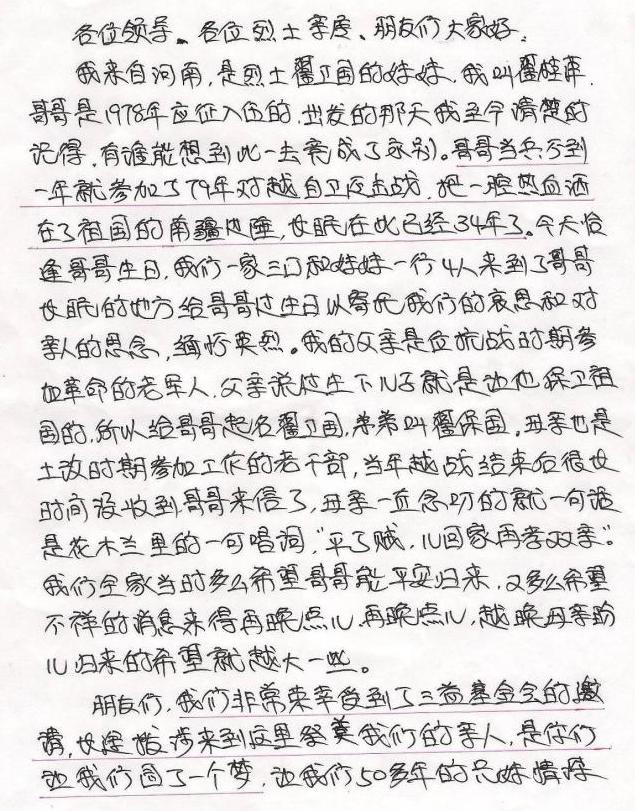 各位领导、各位烈士亲属、朋友们大家好：
我来自河南，是烈士翟卫国的妹妹，我叫翟胜革。
哥哥是1978年应征入伍的，出发的那天我至今清楚的
记得，有谁能想到此一去竟成了永别。哥哥当兵不到
一年就参加了79年对越自卫反击战，把一腔热血洒
在了祖国的南疆边陲，长眠在此已经34年了。今天恰
逢哥哥生日，我们一家三口和妹妹一行4人来到了哥哥
长眠的地方给哥哥过生日以寄托我们的哀思和对
亲人的思念，缅怀英烈。我的父亲是位抗战时期参
加革命的老军人，父亲说过生下儿子就是让他保卫祖
国的，所以给哥哥起名翟卫国，弟弟叫翟保国。母亲也是
土改时期参加工作的老干部，当年越战结束后很长
时间没收到哥哥来信了，母亲一直念叨的就一句话
是花木兰里的一句唱词，“平了贼，儿回家再孝双亲”。
我们全家当时多么希望哥哥能平安归来，又多么希望
不祥的消息来得再晚点儿，再晚点儿，越晚母亲盼
儿归来的希望就越大一些。
朋友们，我们非常荣幸受到了三益基金会的邀
请，长途跋涉来到这里祭奠我们的亲人，是你们
让我们圆了一个梦，让我们50多年的兄妹情深